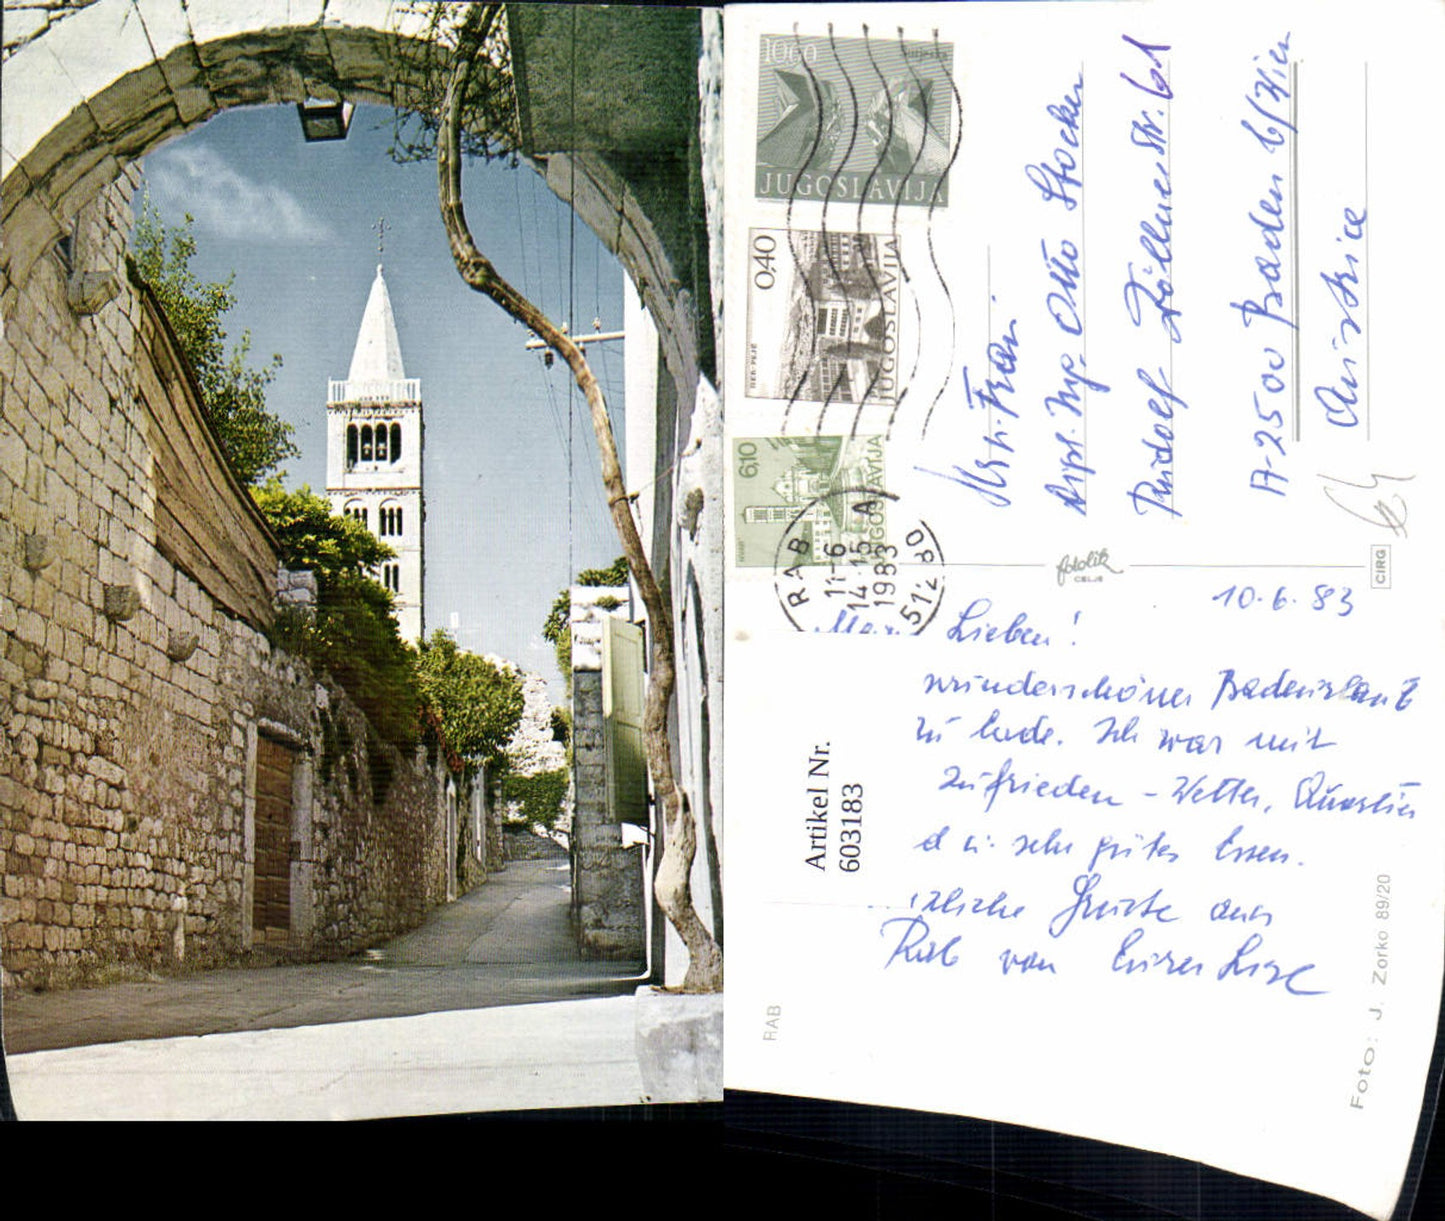 10.00
JUGOSLAVIJA
0,40
JUGOSLAVIJA
6,10
JUGOSLAVIJA
RAB
11-6
14-15
1983
A
512 80
Frau
Otto Stocker
Rudolf Zöllnerstr. 61
A-2500 Baden b/Wien
Austria
fotolik
CELJE
CIRG
10.6.83
Lieben!
wunderschöner Badeurlaub
zu Ende. Ich war mit
zufrieden - Wetter, Quartier
u. sehr gutes Essen.
Grüsse aus
Rab von Eurer
Artikel Nr.
603183
RAB
Foto: J. Zorko 89/20